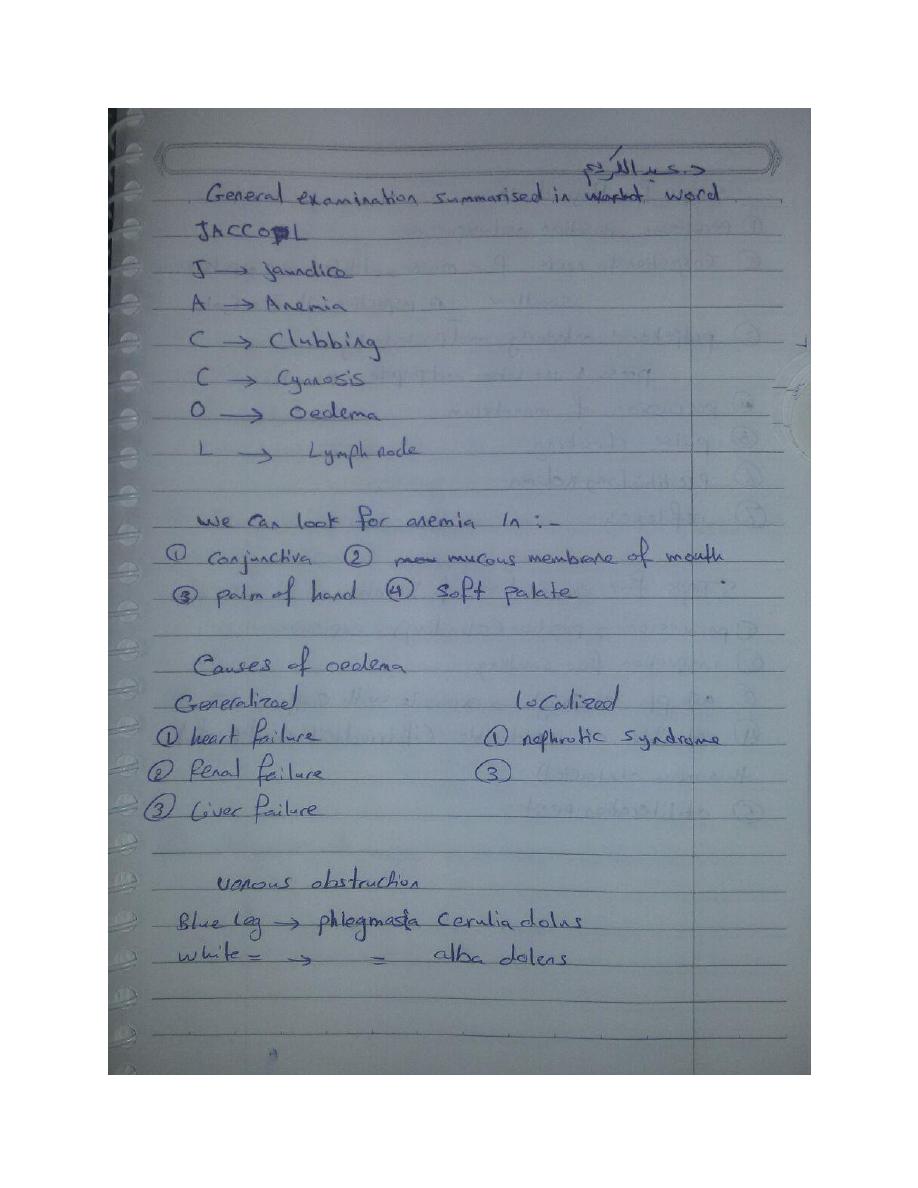 د. عبد الكريم
General examination summarised in word
JACCOL
J → jaundice
A → Anemia
C → Clubbing
C → Cyanosis
O → Oedema
L → Lymph node
we can look for anemia In :-
① conjunctiva ② mucous membrane of mouth
③ palm of hand ④ soft palate
Causes of oedema
Generalized localized
① heart failure ① nephrotic syndrome
② Renal failure ③
③ Liver failure
venous obstruction
Blue leg → phlegmasia Cerulia dolns
white = → = alba dolens